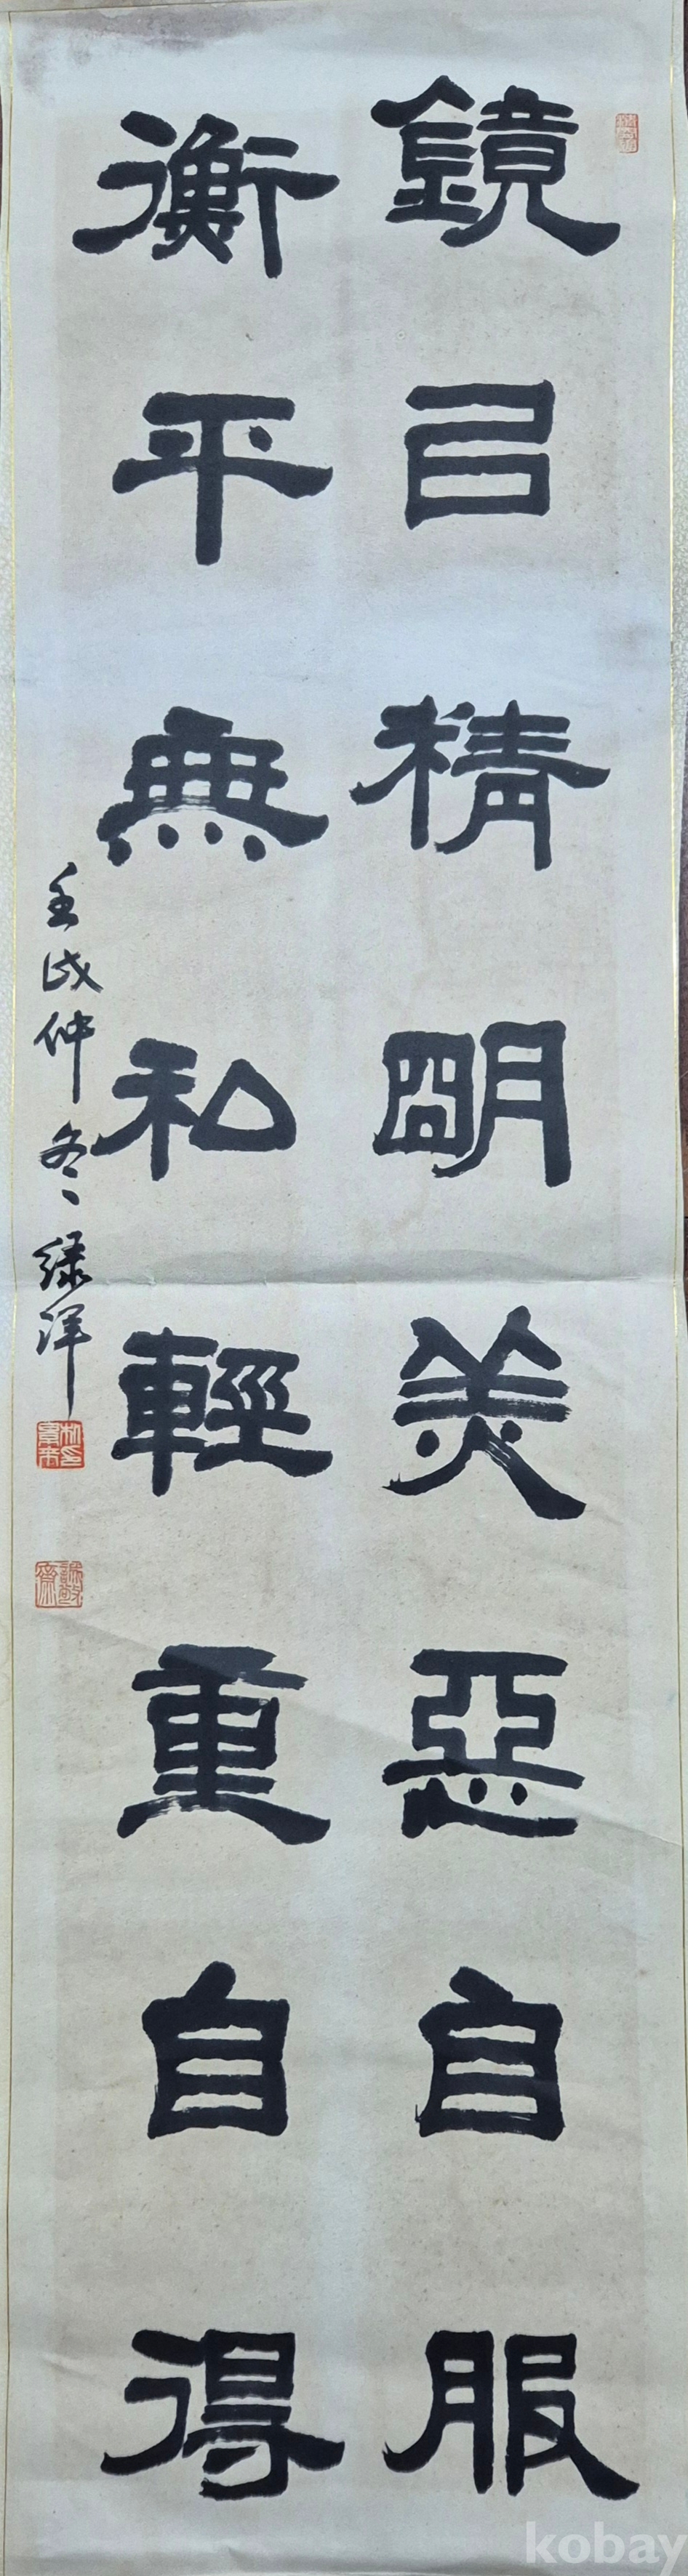 鏡㠯精明美惡自服
衡平無私輕重自得
壬戌仲冬 緑洋
kobay